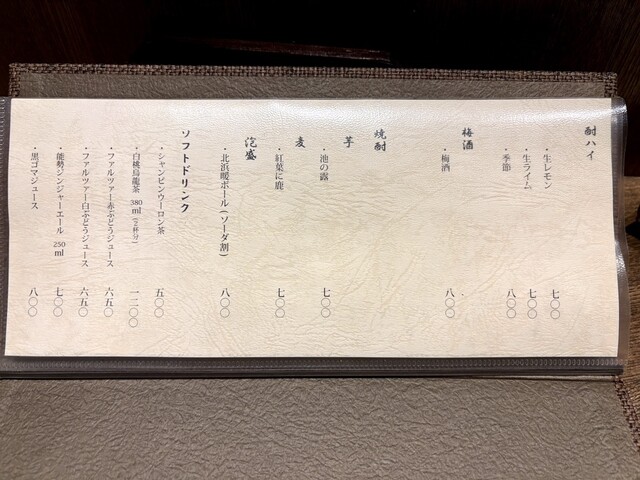 酎ハイ
・生レモン 七〇〇
・生ライム 七〇〇
・季節 八〇〇
梅酒
・梅酒 八〇〇
焼酎
芋
・池の露 七〇〇
麦
・紅葉に鹿 七〇〇
泡盛
・北浜暖ボール(ソーダ割) 八〇〇
ソフトドリンク
・シャンピンウーロン茶 五〇〇
・白桃烏龍茶 380ml(2杯分) 一二〇〇
・ファルツァー赤ぶどうジュース 六五〇
・ファルツァー白ぶどうジュース 六五〇
・能勢ジンジャーエール 250ml 七〇〇
・黒ゴマジュース 八〇〇